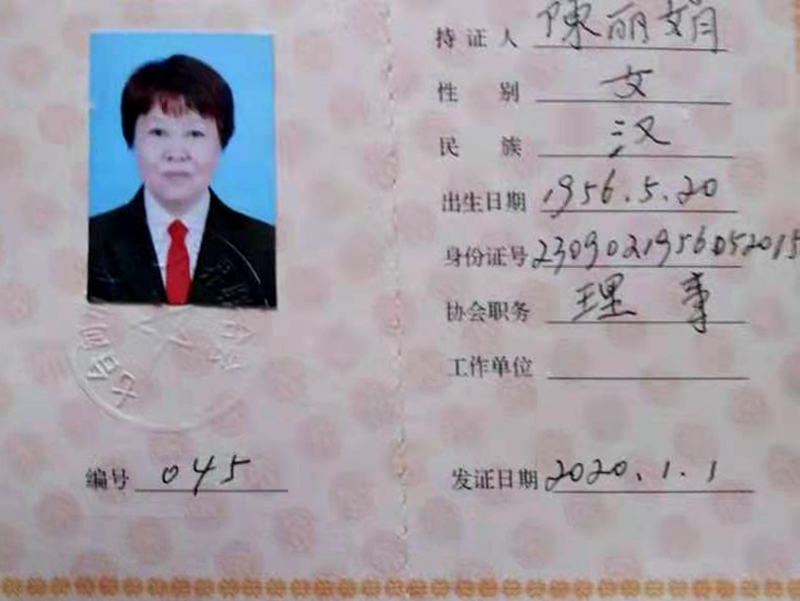 持证人 陳丽娟
性别 女
民族 汉
出生日期 1956.5.20
身份证号 2309021956052015
协会职务 理事
工作单位
编号 045
发证日期 2020.1.1